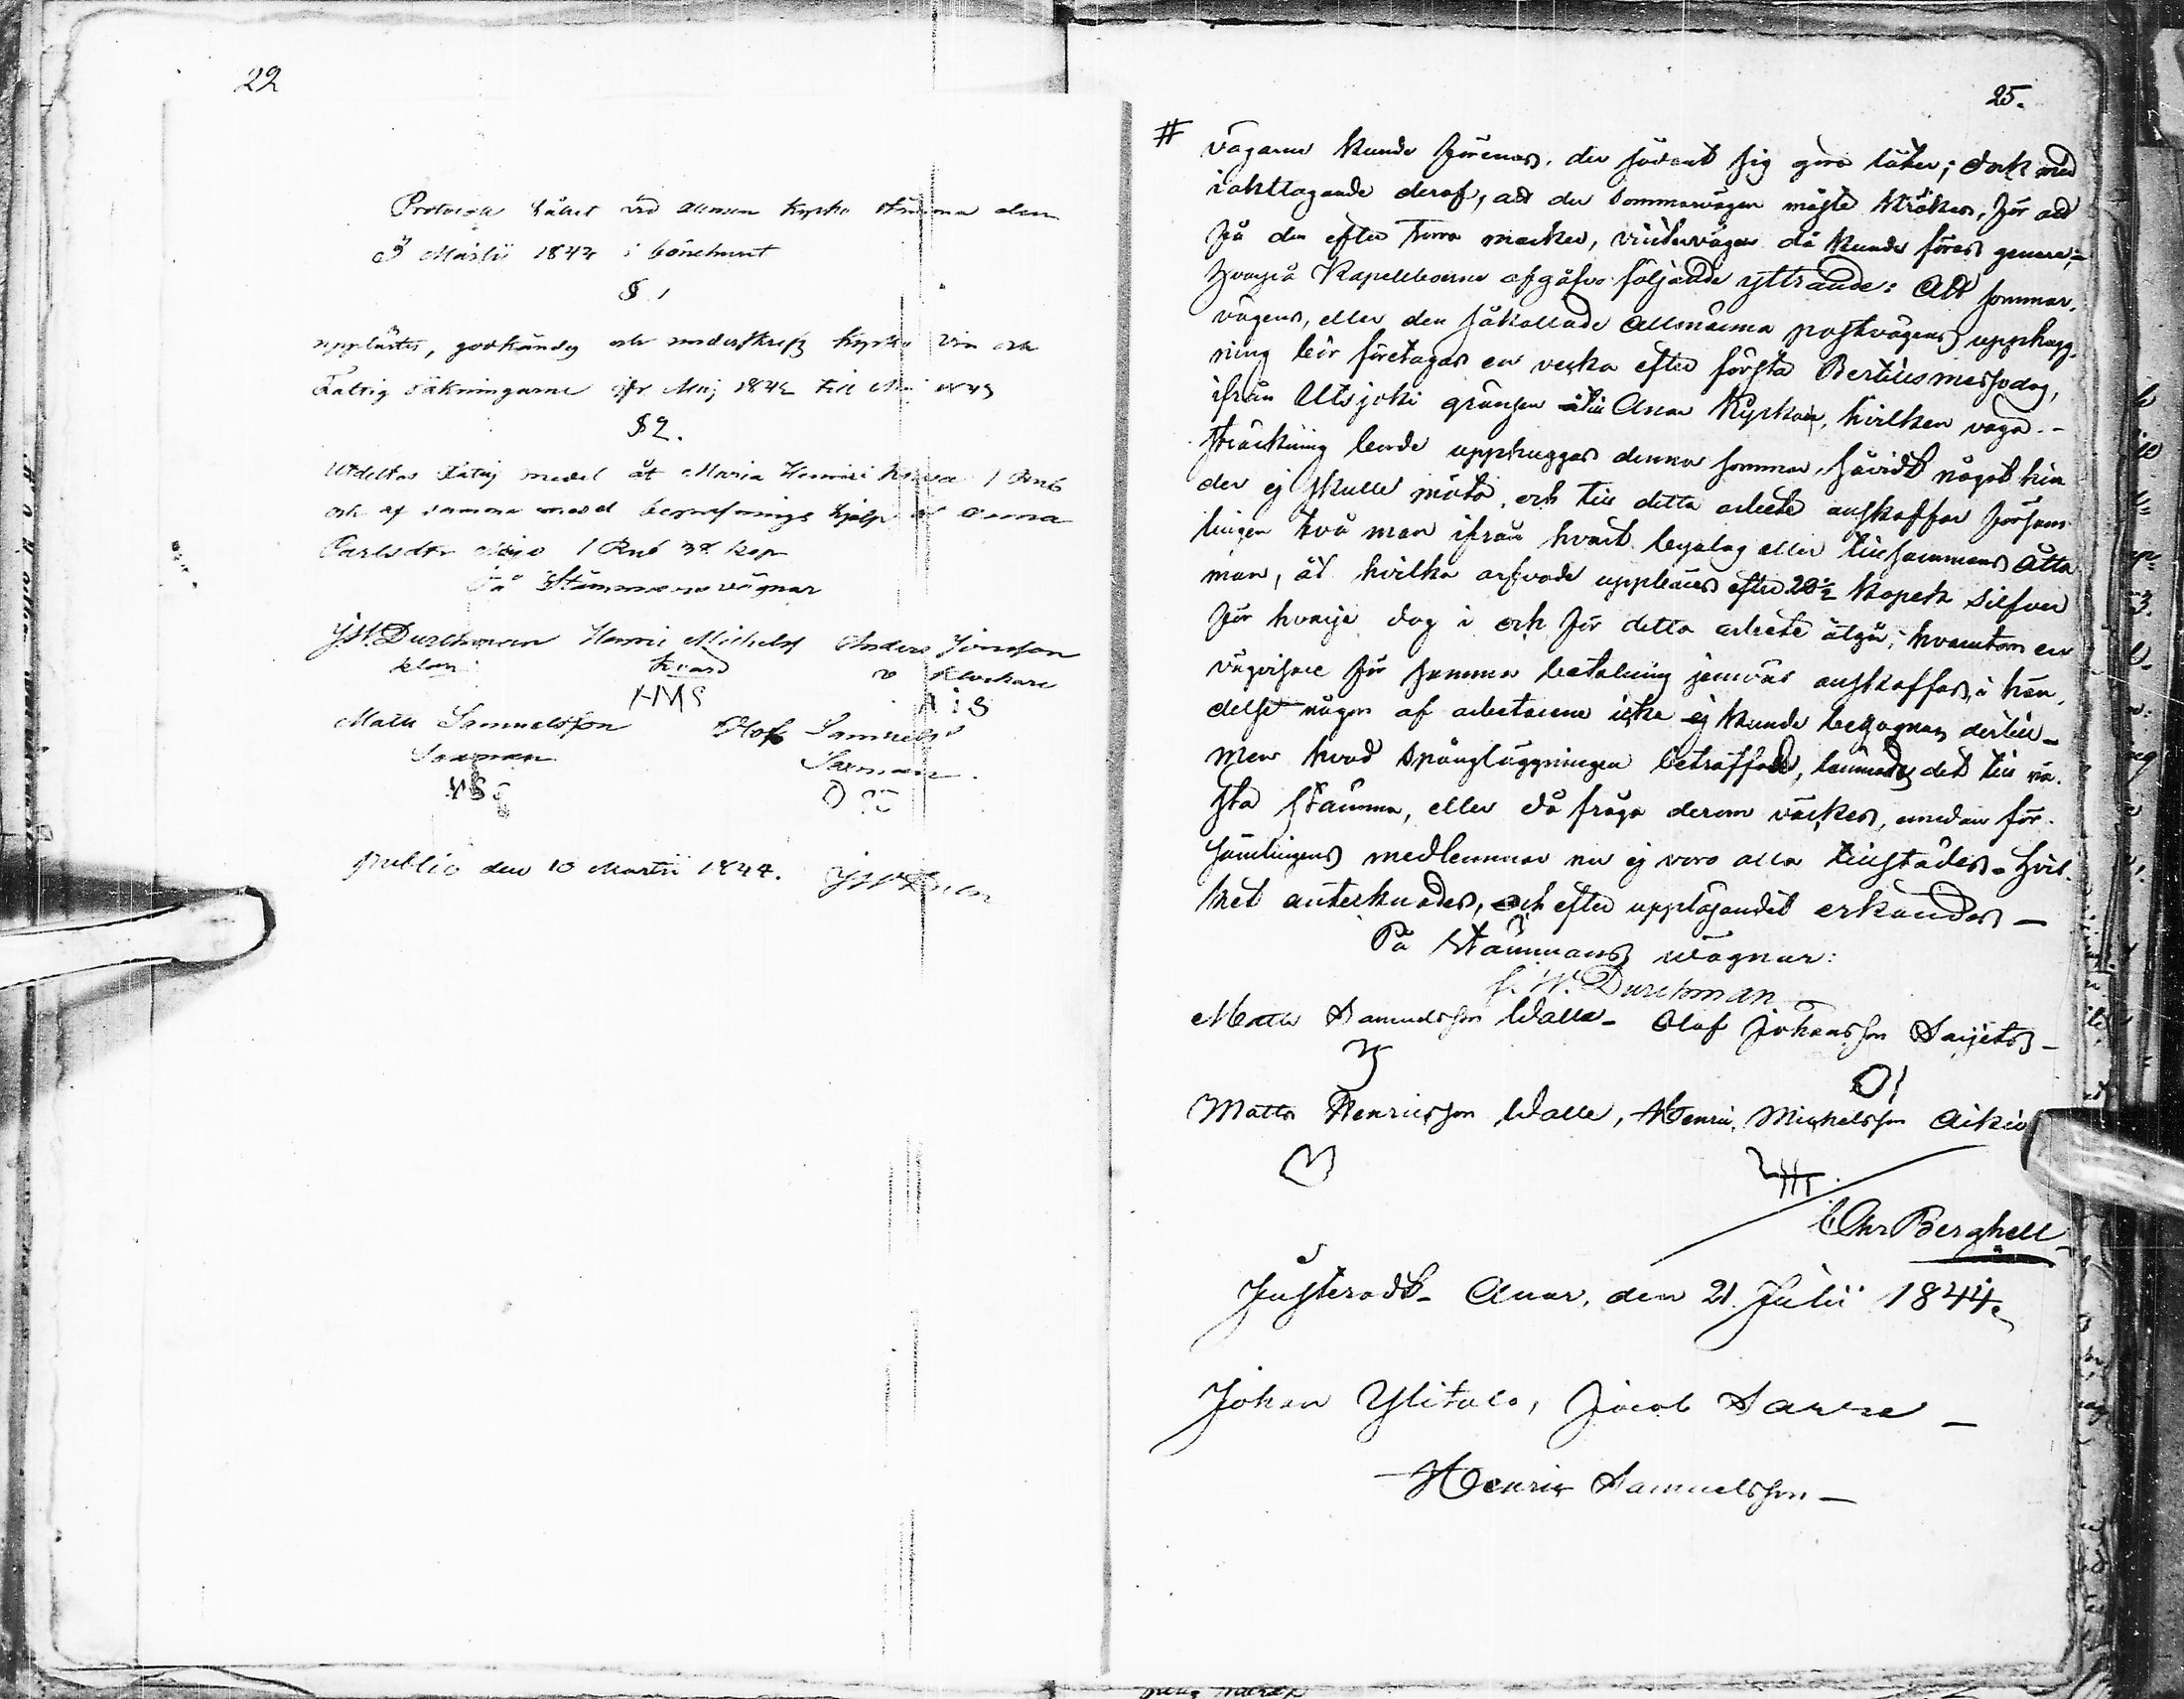 22
Protocoll hållit vid allmen kyrko stämma den
3 Martii 1844 i bönehuset
§ 1
upplästes, godkändes och underskrefs kyrko vin och
Fattig räkningarne ifr. Maj 1842 till Maj 1843
§ 2.
Utdeltes Fattig medel åt Maria Henrici 1 Rub
och af samma medel begrafnings hjelp åt Anna
Carlsdtr 1 Rub 38 kop
På Stämmans vägnar
J.W. Durchman Henric Michelss Anders Jonsson
HMS
Matts Samuelsson Olof Samuelss
Saxman Saxman
public den 10 Martii 1844. JWD
25.
# vägarne kunde förenas, der sådant sig göra låter; dock med
iakttagande deraf, att der Sommarvägen måste krökas, för att
få den efter torra marker, vintervägen då kunde föras genare;
Hvarpå Kapellboerne afgåfvo följande yttrande: Att sommar,
vägens, eller den såkallade Allmänna postvägens upphugg-
ning bör företagas en vecka efter första Bertilsmessodag,
ifrån Utsjoki gränsen till Enare Kyrkan, hvilken väga-
sträckning borde upphuggas denna sommar, såvidt något hin
der ej skulle möta, och till detta arbete anskaffar försam
lingen två man ifrån hvart byalag eller tillsammans Åtta
man, åt hvilka arfvode uppbäres efter 28½ kopek silfver
för hvarje dag i och för detta arbete åtgår; hvarutom en
vägvisare för samma betalning jemväl anskaffas, i hän,
delse någon af arbetarene icke ej kunde begagnas dertill-
Men hvad Spångläggningen beträffade, lämnades det till nä-
sta stämma, eller då fråga derom väckes, emedan för-
samlingens medlemmar nu ej voro alla tillstädes. Hvil-
ket antecknades, och efter uppläsandet erkändes —
På Stämmans wägnar:
J. W. Durchman
Matts Samuelsson Walle - Olof Johansson Saijets -
Matts Henricsson Walle, Henric Michelsson Aikio
Chr Berghell
Justeradt. Enare, den 21 Julii 1844.
Johan Ylitalo, Jacob Sarre —
Henric Samuelsson —